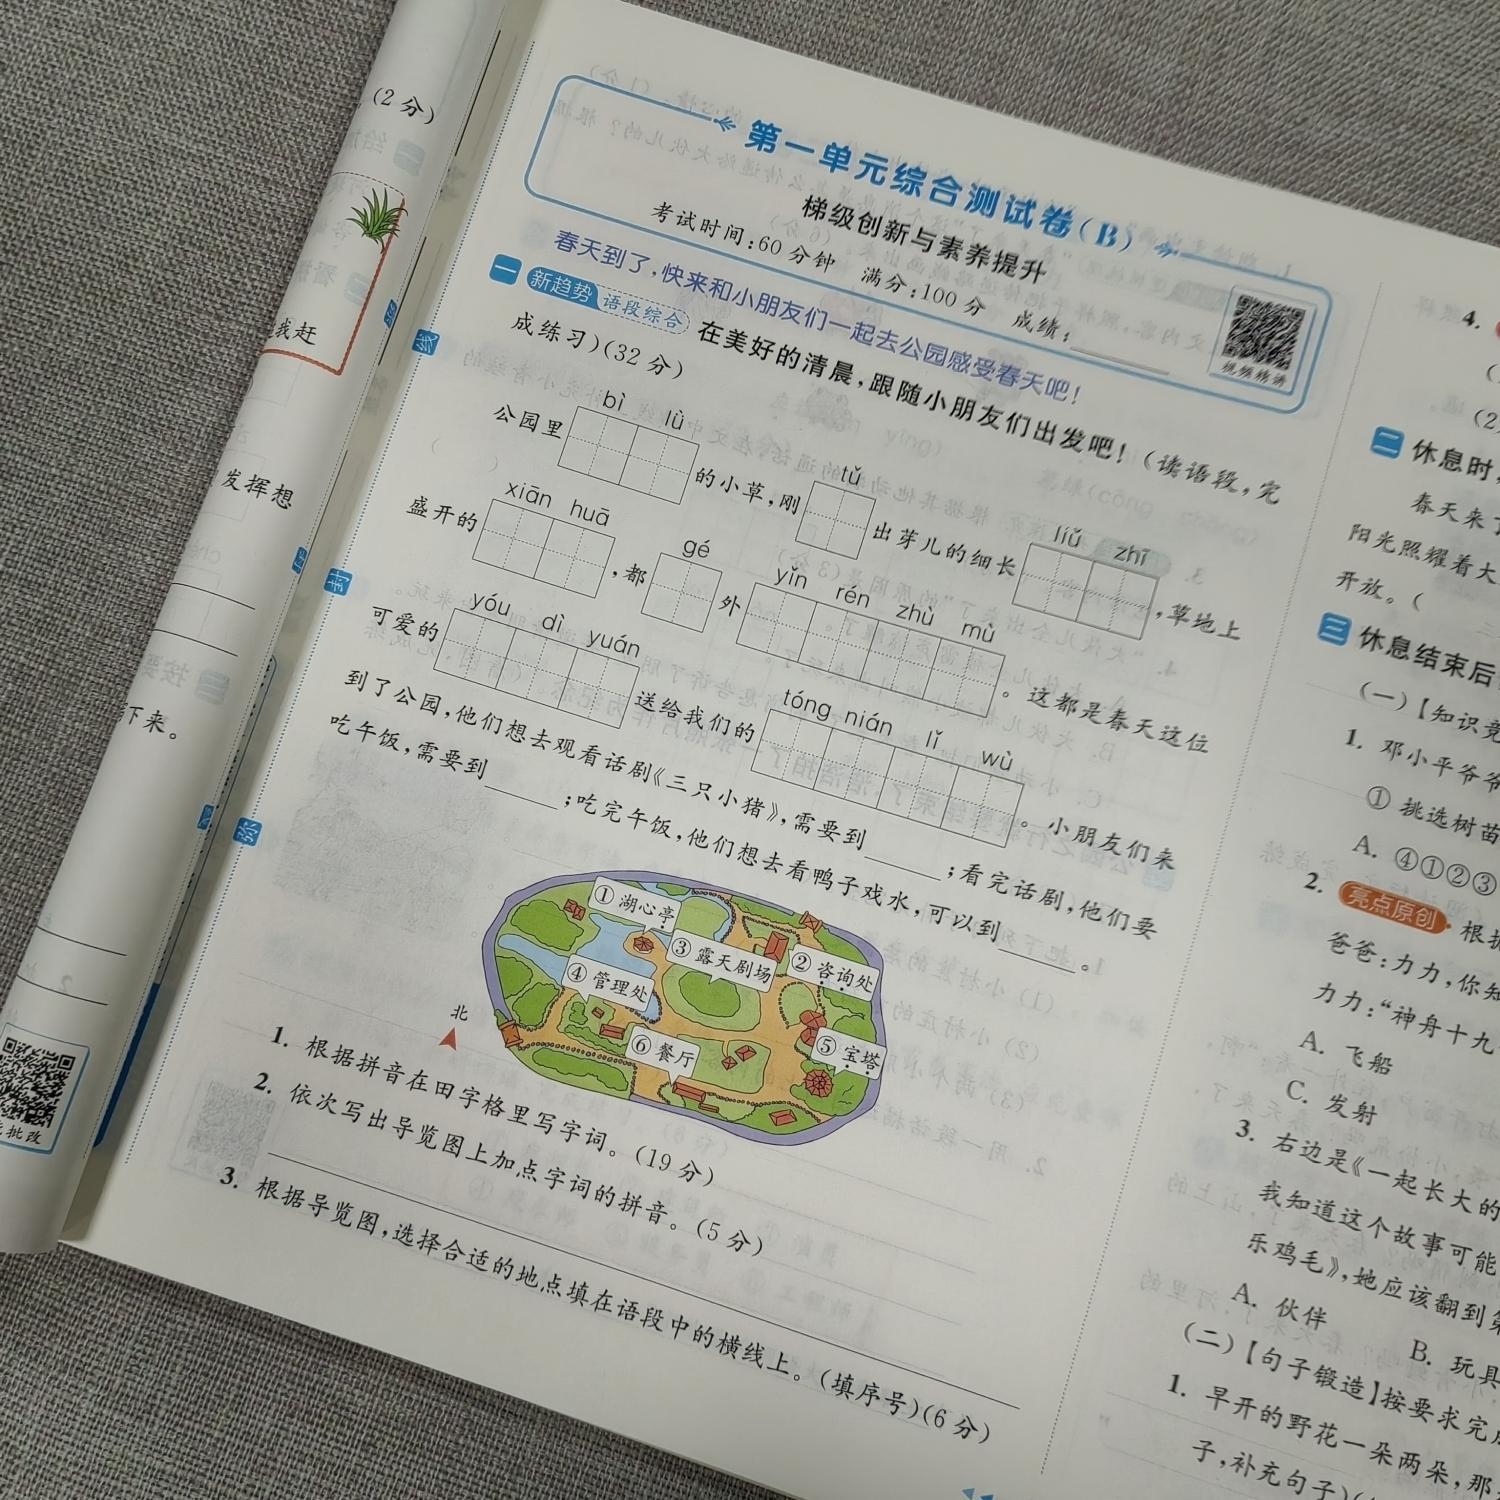 (2 分)
我赶
发挥想
下来。
批改
线
封
弥
第一单元综合测试卷(B)
梯级创新与素养提升
考试时间:60 分钟 满分:100 分 成绩:
视频精讲
春天到了,快来和小朋友们一起去公园感受春天吧!
一 新趋势 语段综合 在美好的清晨,跟随小朋友们出发吧!(读语段,完
成练习)(32 分)
bì lǜ tǔ liǔ zhī
公园里 的小草,刚 出芽儿的细长 ,草地上
xiān huā gé yǐn rén zhù mù
盛开的 ,都 外 。这都是春天这位
yóu dì yuán tóng nián lǐ wù
可爱的 送给我们的 。小朋友们来
到了公园,他们想去观看话剧《三只小猪》,需要到 ;看完话剧,他们要
吃午饭,需要到 ;吃完午饭,他们想去看鸭子戏水,可以到 。
①湖心亭
③露天剧场
②咨询处
④管理处
⑥餐厅
⑤宝塔
北
1. 根据拼音在田字格里写字词。(19 分)
2. 依次写出导览图上加点字词的拼音。(5 分)
3. 根据导览图,选择合适的地点填在语段中的横线上。(填序号)(6 分)
4.
(2
二 休息时,
春天来了
阳光照耀着大
开放。(
三 休息结束后
(一)【知识竞
1. 邓小平爷爷
① 挑选树苗
A. ④①②③
2. 亮点原创 根据
爸爸:力力,你知
力力:“神舟十九
A. 飞船
C. 发射
3. 右边是《一起长大的
我知道这个故事可能
乐鸡毛》,她应该翻到第
A. 伙伴 B. 玩具
(二)【句子锻造】按要求完成
1. 早开的野花一朵两朵,那
子,补充句子)(